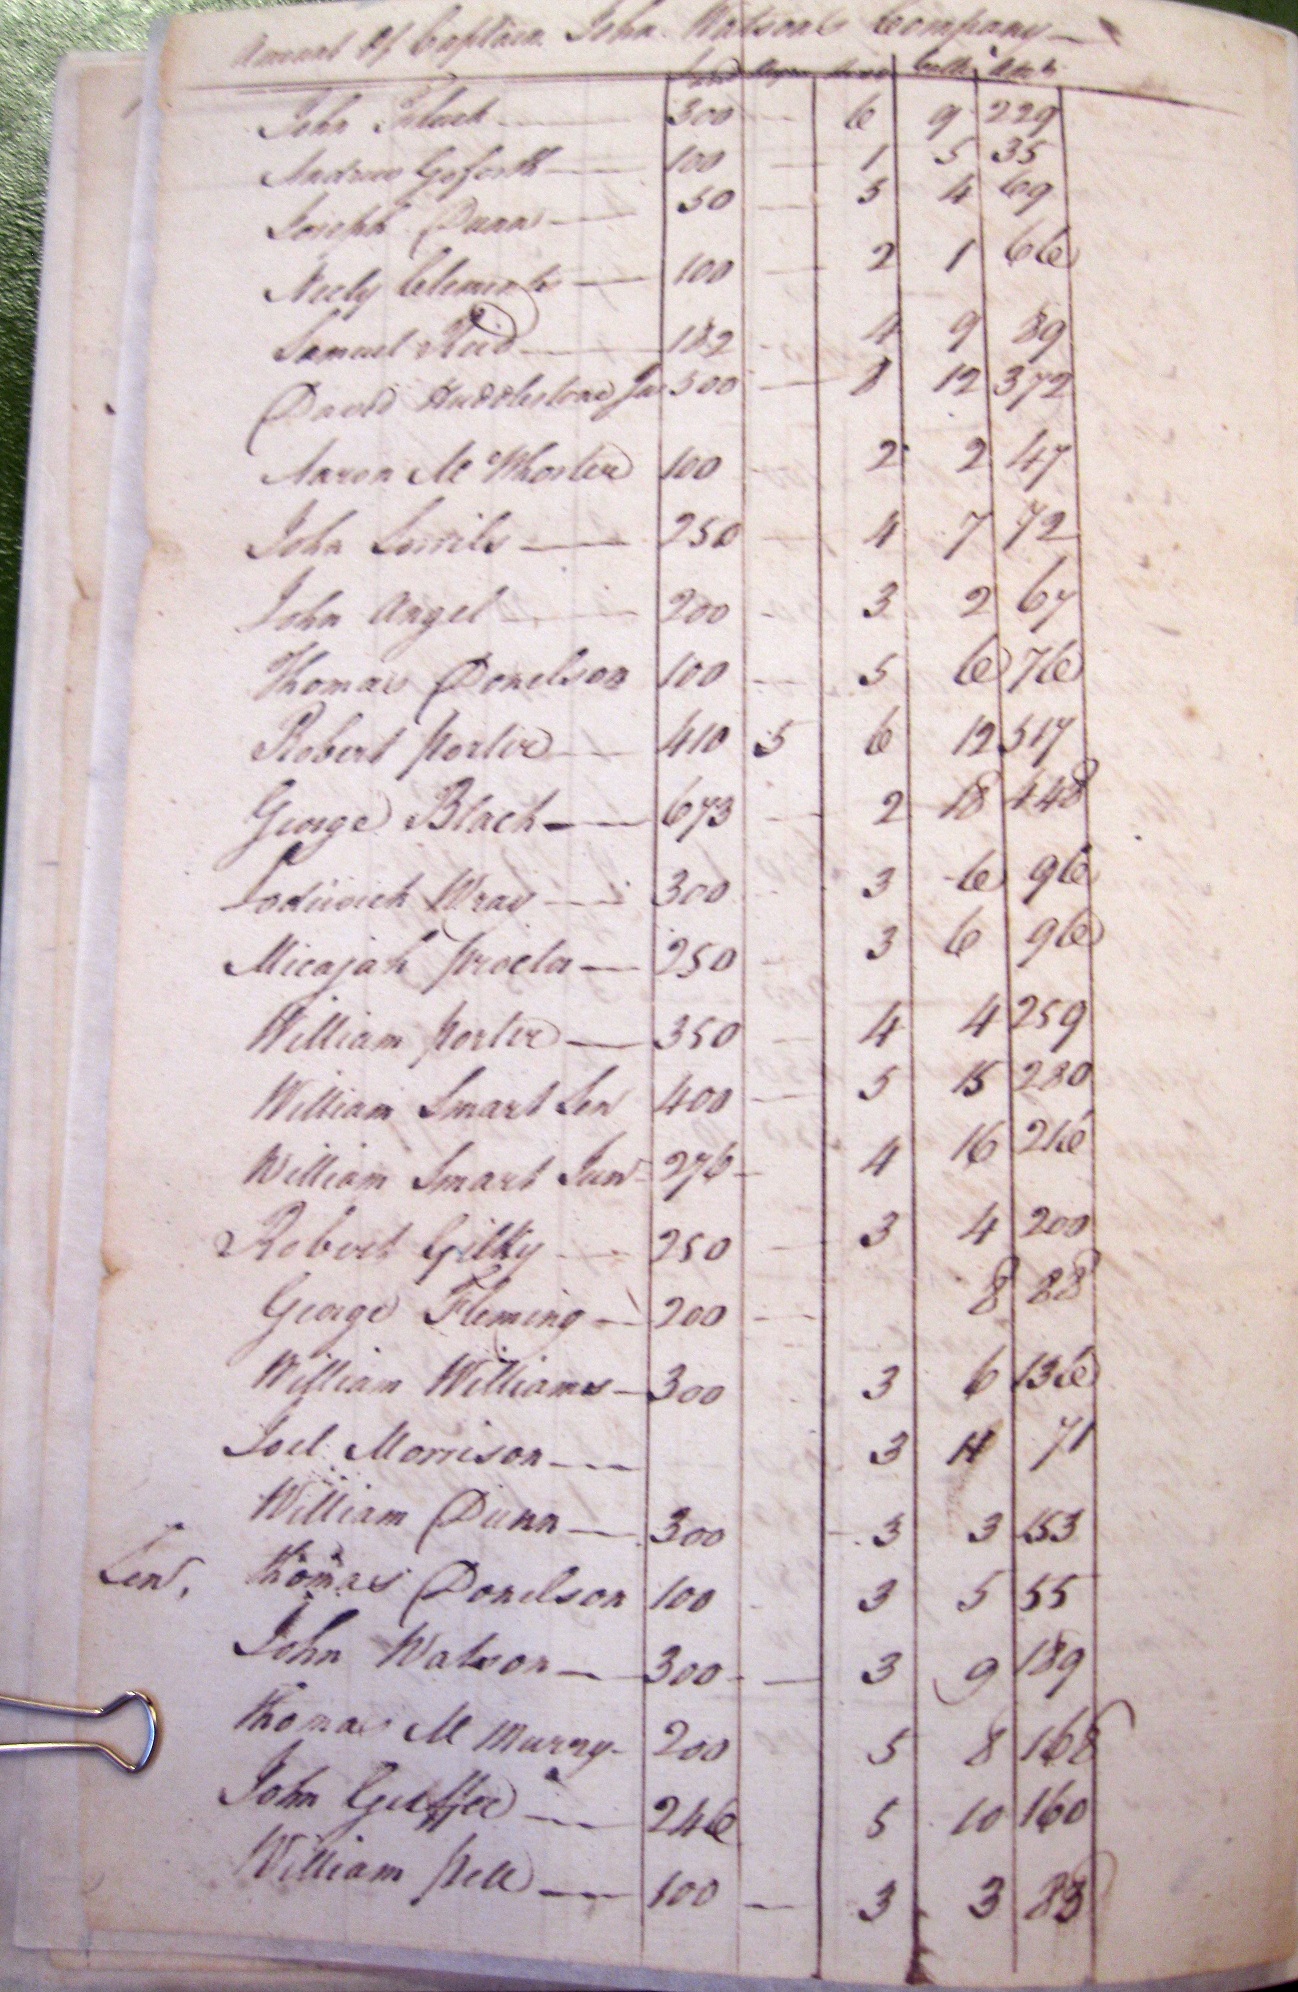 Amount Of Captain John Watsons Company
Land Negros Horses Cattle Stock
John Flack 300 6 9 229
Andrew Goforth 100 1 5 35
Joseph Dunn 50 5 4 69
Neely Clements 100 2 1 66
Samuel Reed 182 4 9 89
David Huddlestone Jur 500 8 12 372
Aaron Mc Whorter 100 2 2 47
John 250 4 7 72
John Angel 200 3 2 67
Thomas Donelson 100 5 6 76
Robert Porter 410 5 6 12 517
George Black 673 2 18 448
Lodwick Wray 300 3 6 96
Micajah Procter 250 3 6 96
William Porter 350 4 4 259
William Smart Sen 400 5 15 280
William Smart Jun 276 4 16 216
Robert Gilky 250 3 4 200
George Fleming 200 8 88
William Williams 300 3 6 136
Joel Morrison 3 71
William Dunn 300 3 3 153
Sen, Thomas Donelson 100 3 5 55
John Watson 300 3 9 189
Thomas Mc Murry 200 5 8 168
John Guffee 246 5 10 160
William Pell 100 3 3 83